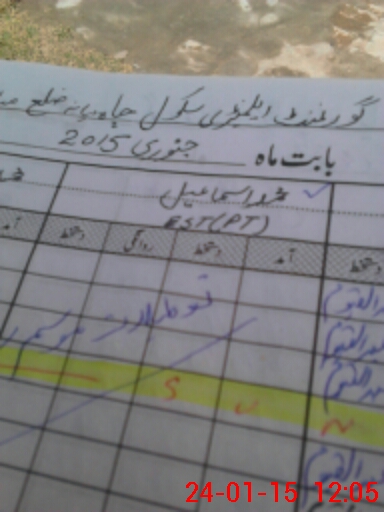 گورنمنٹ ایلیمنٹری سکول ضلع
بابت ماہ جنوری 2015
محمد اسماعیل
EST(PT)
دستخط آمد دستخط روانگی دستخط آمد
تعطیلات موسم
عبدالقیوم
عبدالقیوم
عبدالقیوم
N U S
عبدالقیوم
24-01-15 12:05